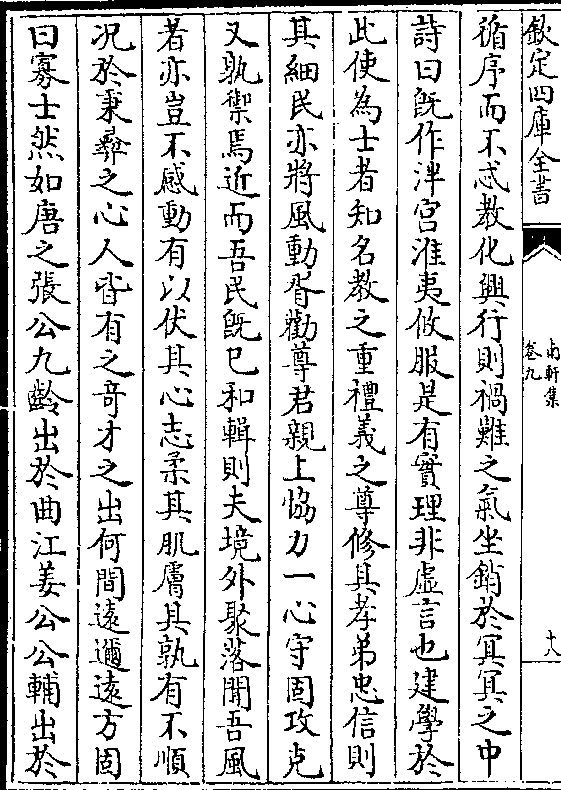 欽定四庫全書
南軒集
卷九
十八
循序而不忒教化興行則禍難之氣坐銷於冥冥之中
詩曰既作泮宮淮夷攸服是有實理非虛言也建學於
此使為士者知名教之重禮義之尊修其孝弟忠信則
其細民亦將風動胥勸尊君親上協力一心守固攻克
又孰禦焉近而吾民既已和輯則夫境外聚落聞吾風
者亦豈不感動有以伏其心志柔其肌膚其孰有不順
况於秉彞之心人皆有之竒才之出何間遠邇遠方固
曰寡士然如唐之張公九齡出於曲江姜公公輔出於